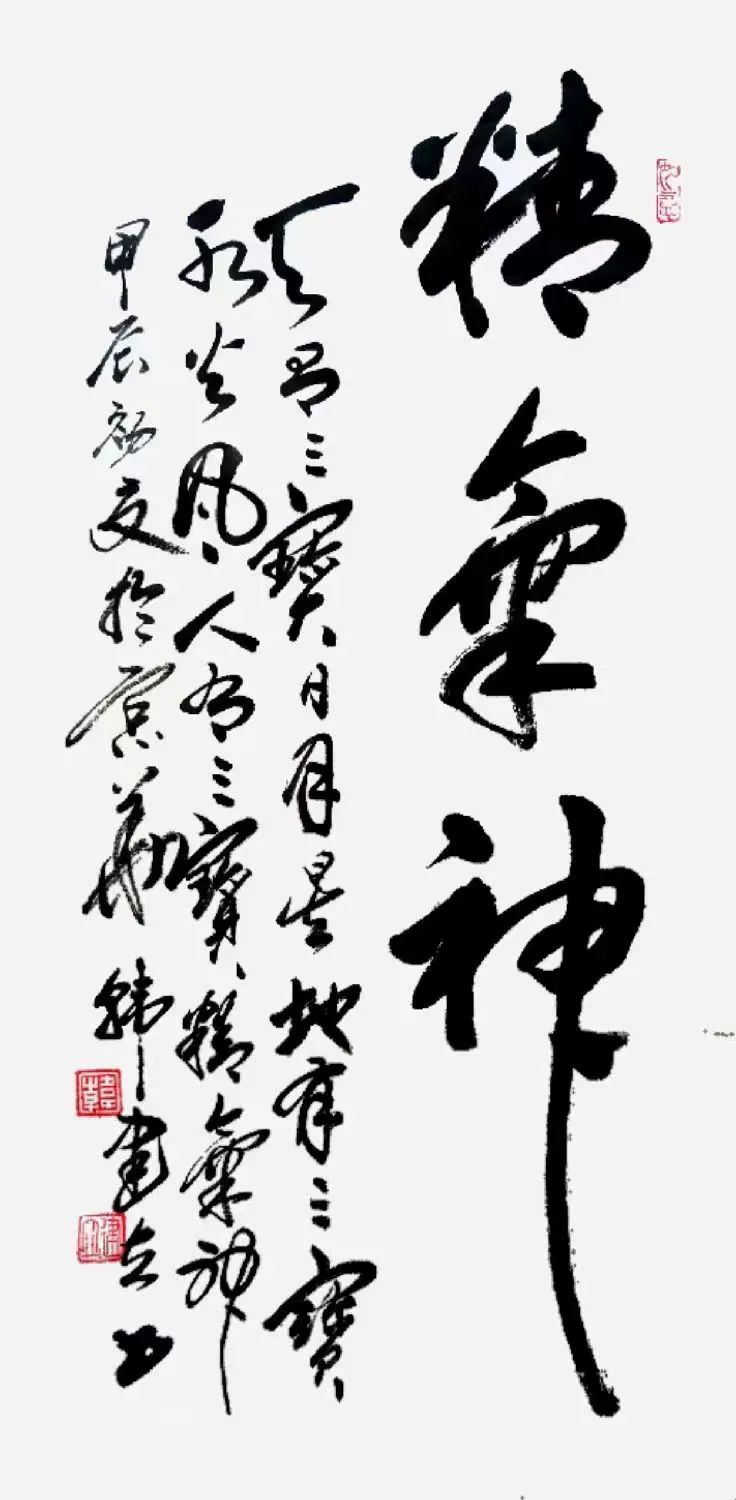 精氣神
天有三寶日月星地有三寶
水火風人有三寶精氣神
甲辰初夏於京華韓建立书
韓